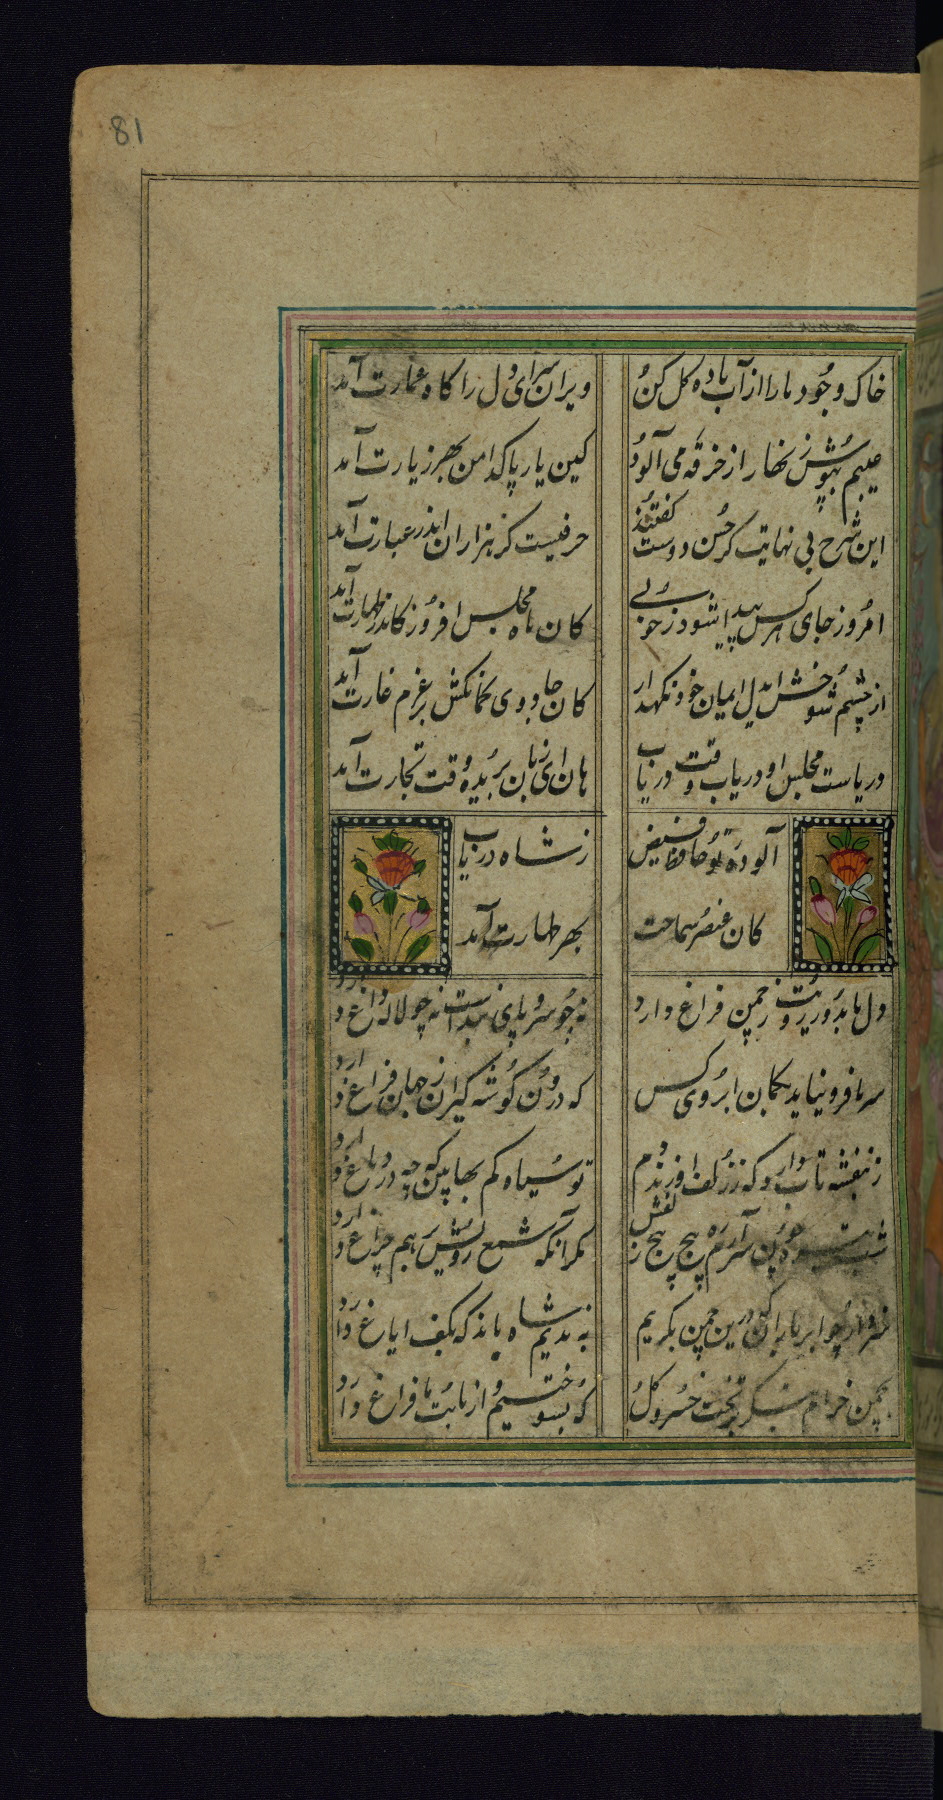 81
خاک وجود ما را از آب باده گل کن ویران سرای دل را گاه عمارت آمد
عیبم بپوش زنهار از خرقه می آلود کین یار پاکدامن بهر زیارت آمد
این شرح بی نهایت کز حسن دوست گفتند حرفیست کز هزاران اندر عبارت آمد
امروز جای هر کس پیدا شود ز خوبی کان ماه مجلس افروز کاندر طهارت آمد
از چشم شوخش ایدل ایمان خود نگهدار کان جادوی کمانکش بر عزم غارت آمد
دریاست مجلس او دریاب وقت دریاب هان ای زیان بریده وقت تجارت آمد
آلوده تو حافظ فیض ز شاه دریاب
کان عنصر سماحت بهر طهارت آمد
دل ما بدور رویت ز چمن فراغ دارد که چو سرو پای بندست نه چو لاله داغ دارد
سر ما فرو نیاید بکمان ابروی کس که درون گوشه گیران ز جهان فراغ دارد
ز بنفشه تاب دارم که ز زلف او زند دم تو سیاه کم بها بین که چه در دماغ دارد
شب سر آرم پیچ پیچ زلفش مگر آنکه شمع رویش رهم چراغ دارد
سزد ار چو ابر باران که درین چمن بگریم به ندیم شاه ماند که بکف ایاغ دارد
بچمن خرام بنگر بر تخت خسرو گل که بسوختیم و از ما بت ما فراغ دارد